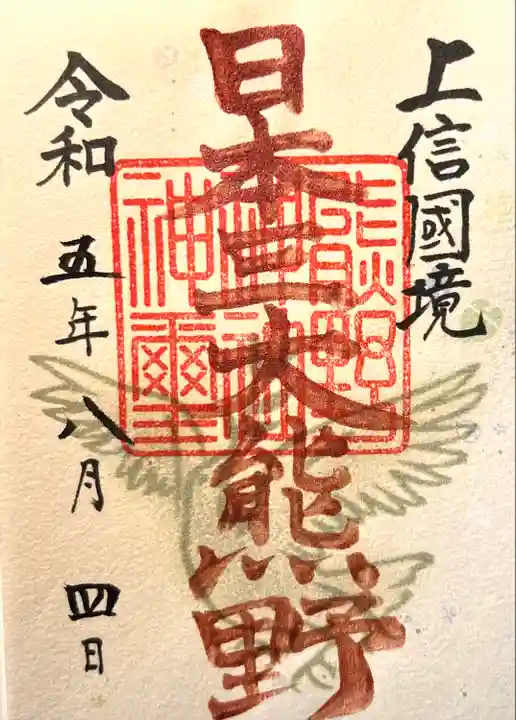 上信國境
日本三大熊野
熊野
神社
神璽
令和五年八月四日